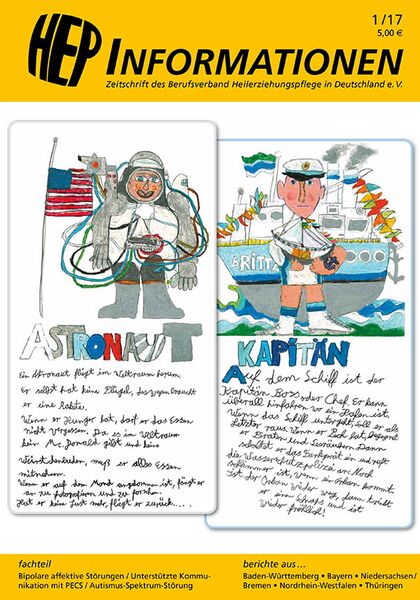 HEP INFORMATIONEN
1/17
5,00 €
Zeitschrift des Berufsverband Heilerziehungspflege in Deutschland e. V.
BRITT
ASTRONAUT
Ein Astronaut fliegt im Weltraum herum.
Er selbst hat keine Flügel, deswegen braucht
er eine Rakete.
Wenn er Hunger hat, darf er das Essen
nicht vergessen. Da es im Weltraum
kein Mc. Donald gibt und keine
Würstchenbuden, muß er alles Essen
mitnehmen.
Wenn er auf dem Mond angekommen ist, fängt er
an zu fotografieren und zu forschen.
Hat er keine Lust mehr, fliegt er zurück....
KAPITÄN
Auf dem Schiff ist der
Kapitän Boss oder Chef. Er kann
überall hinfahren wo ein Hafen ist.
Wenn das Schiff untergeht, soll er als
Letzter raus. Wenn er Pech hat, begegnet
er Piraten und Seeräubern. Dann
schaltet er das Funkgerät ein und ruft
die Wasserschutzpolizei an. Noch
schlimmer ist, wenn ein Orkan kommt.
Ist der Orkan wider weg, dann trinkt
er einen Schnaps und ist
wider fröhlich!
fachteil
Bipolare affektive Störungen / Unterstützte Kommu-
nikation mit PECS / Autismus-Spektrum-Störung
berichte aus…
Baden-Württemberg • Bayern • Niedersachsen /
Bremen • Nordrhein-Westfalen • Thüringen